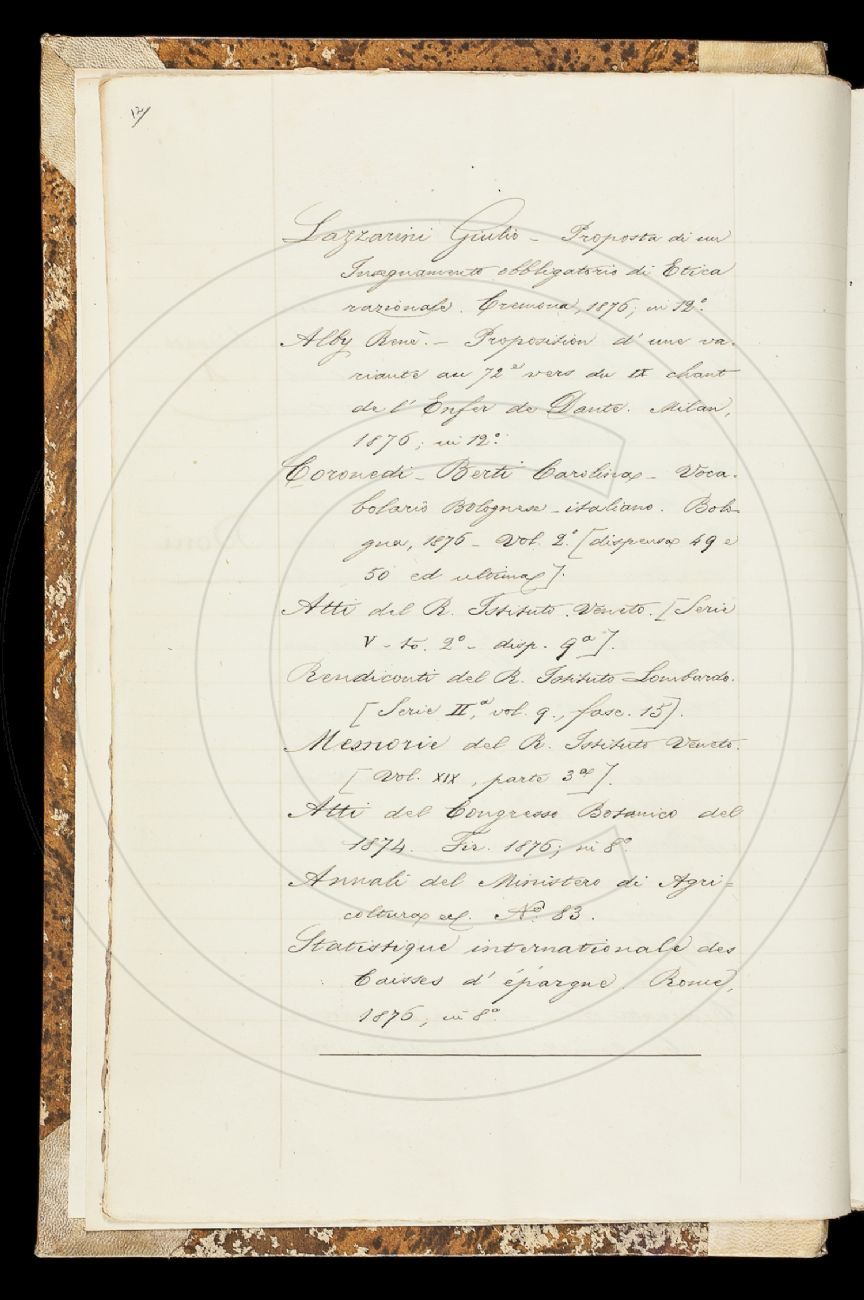 12/
Lazzarini Giulio - Proposta di un
Insegnamento obbligatorio di Etica
razionale. Cremona, 1876; in 12.°
Alby René. - Proposition d'une va-
riante au 72e vers du IX chant
de l'Enfer de Dante. Milan,
1876; in 12.°
Coronedi-Berti Carolina - Voca-
bolario Bolognese-italiano. Bolo-
gna, 1876 - Vol. 2.° [dispensa 49 e
50 ed ultima].
Atti del R. Istituto Veneto. [Serie
V - to. 2° - disp. 9a].
Rendiconti del R. Istituto Lombardo.
[Serie II,a vol. 9., fasc. 15].
Memorie del R. Istituto Veneto.
[Vol. XIX, parte 3a].
Atti del Congresso Botanico del
1874. Fir. 1876; in 8.°
Annali del Ministero di Agri=
coltura ec. N.° 83.
Statistique internationale des
Caisses d'épargne. Rome,
1876; in 8.°